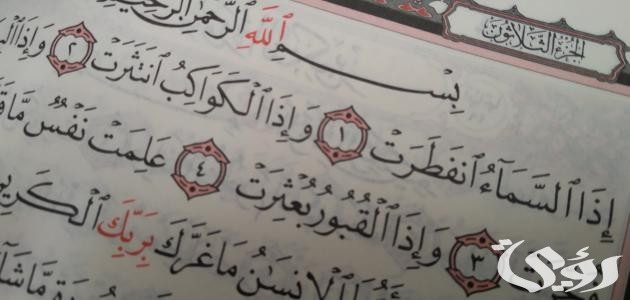 الجزء الثلاثون
بِسْمِ ٱللَّهِ ٱلرَّحْمَٰنِ ٱلرَّحِيمِ
إِذَا ٱلسَّمَآءُ ٱنفَطَرَتْ ١ وَإِذَا ٱلْكَوَاكِبُ ٱنتَثَرَتْ ٢ وَإِذَا
٣ وَإِذَا ٱلْقُبُورُ بُعْثِرَتْ ٤ عَلِمَتْ نَفْسٌ مَّا
ٱلْإِنسَٰنُ مَا غَرَّكَ بِرَبِّكَ ٱلْكَرِيمِ
مَّا شَآءَ
رؤى